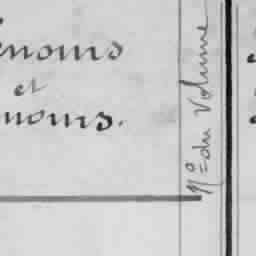 énoms
et
noms.
N° du Volume